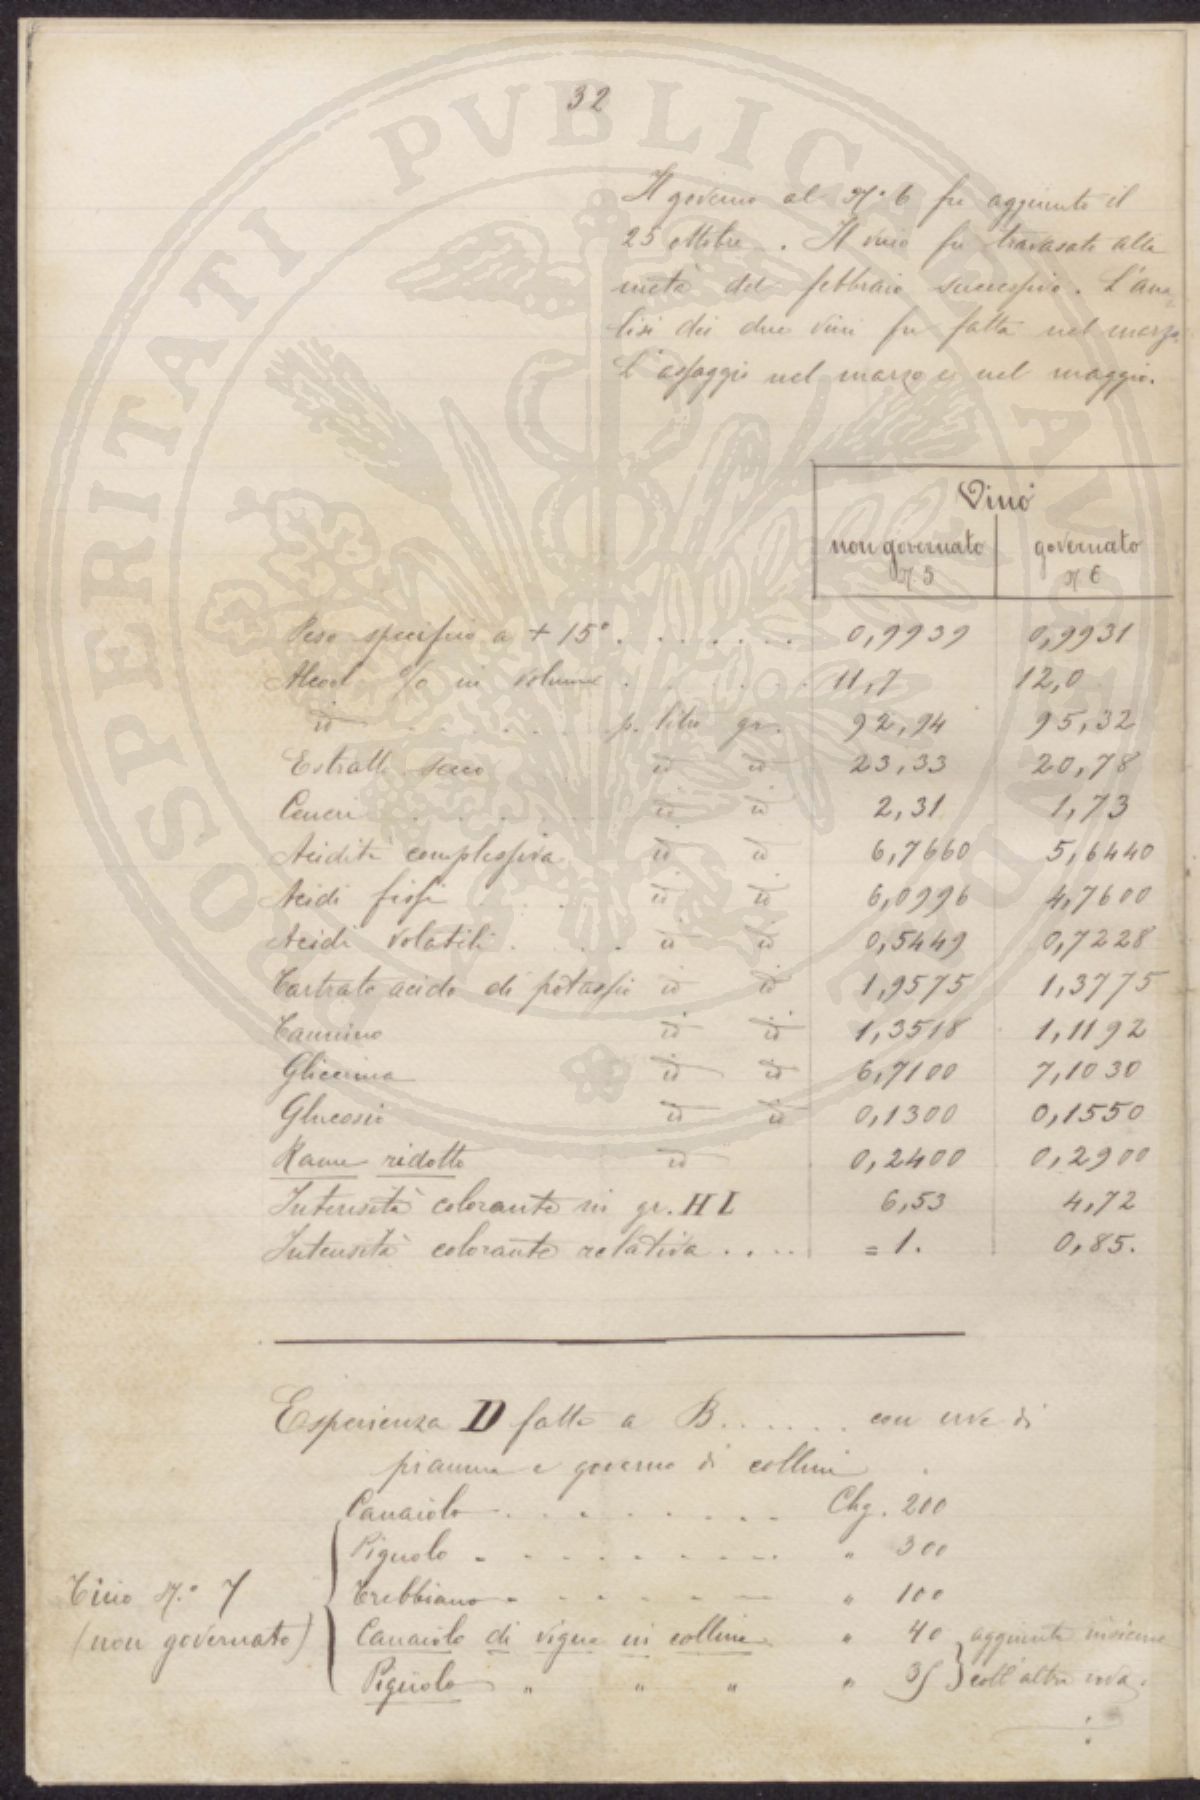 32
Il governo al Nº 6 fu aggiunto il
25 ottobre. Il vino fu travasato alla
metà del febbraio successivo. L'ana-
lisi dei due vini fu fatta nel marzo.
L'assaggio nel marzo e nel maggio.
Vino
non governato governato
N 5 N 6
Peso specifico a + 15º . . . . . . . 0,9939 0,9931
Alcool % in volume . . . . . 11,7 12,0
id . . . . . . p. litro gr. 92,94 95,32
Estratto secco id id 23,33 20,78
Ceneri . . . . . id id 2,31 1,73
Acidità complessiva id id 6,7660 5,6440
Acidi fissi . . . id id 6,0996 4,7600
Acidi volatili . . . . id id 0,5449 0,7228
Tartrato acido di potassio id id 1,9575 1,3775
Tannino id id 1,3518 1,1192
Glicerina id id 6,7100 7,1030
Glucosio id id 0,1300 0,1550
Rame ridotto id 0,2400 0,2900
Intensità colorante in gr. H L 6,53 4,72
Intensità colorante relativa . . . . = 1. 0,85.
Esperienza D fatta a B. . . . . . . con uve di
pianura e governo di collina
Canaiolo . . . . . . . . Chg. 200
Pignolo . . . . . . . . " 300
Tino N.º 7 Trebbiano . . . . . . . " 100
(non governato) Canaiolo di vigna in collina " 40 aggiunte insieme
Pignolo " " " " 35 coll'altra uva.
PROSPERITATI PVBLICAE AVGENDAE